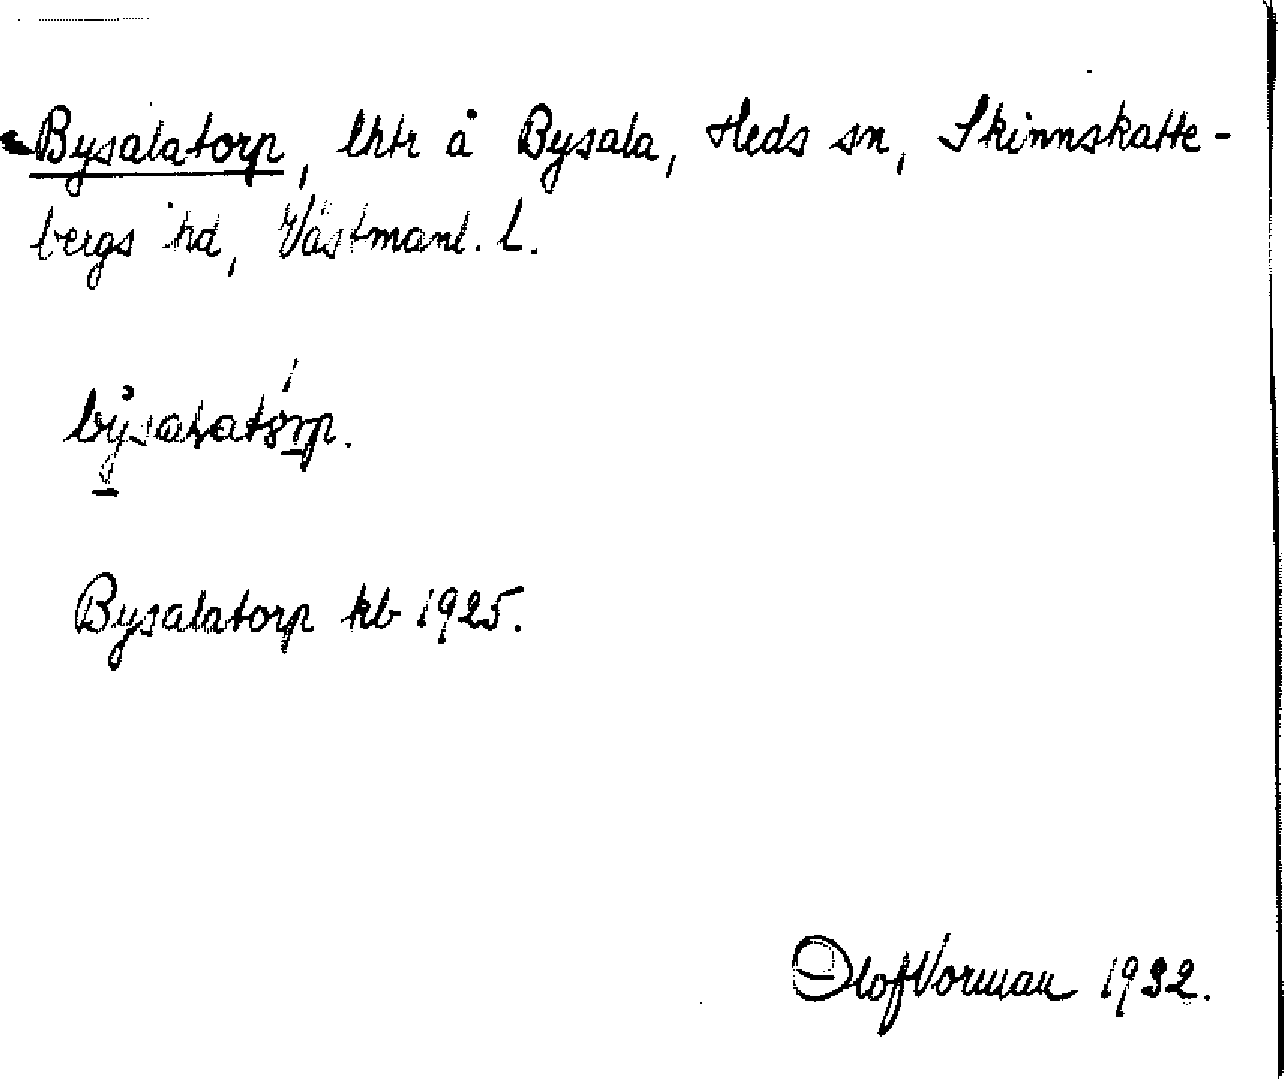 Bysalatorp, lhtr å Bysala, Heds sn, Skinnskatte-
bergs hd, Västmanl. l.
Bysalatorp kb 1925.
Olof Vorman 1932.